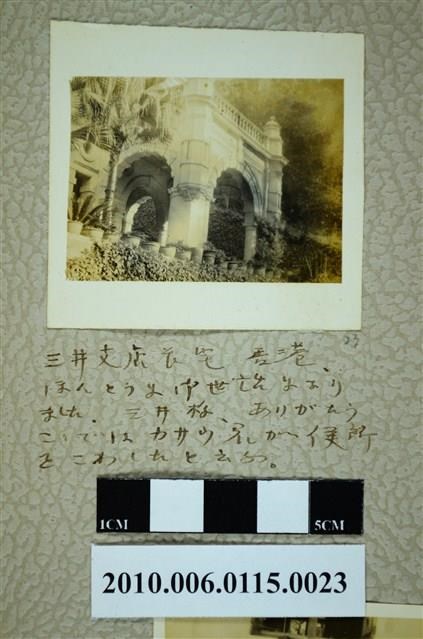 23
三井支店長宅 香港、
ほんとうに御世話になり
ました。三井様、ありがたう
こゝではカサウ 君が便所
をこわしたと云ふ。
1CM
5CM
2010.006.0115.0023